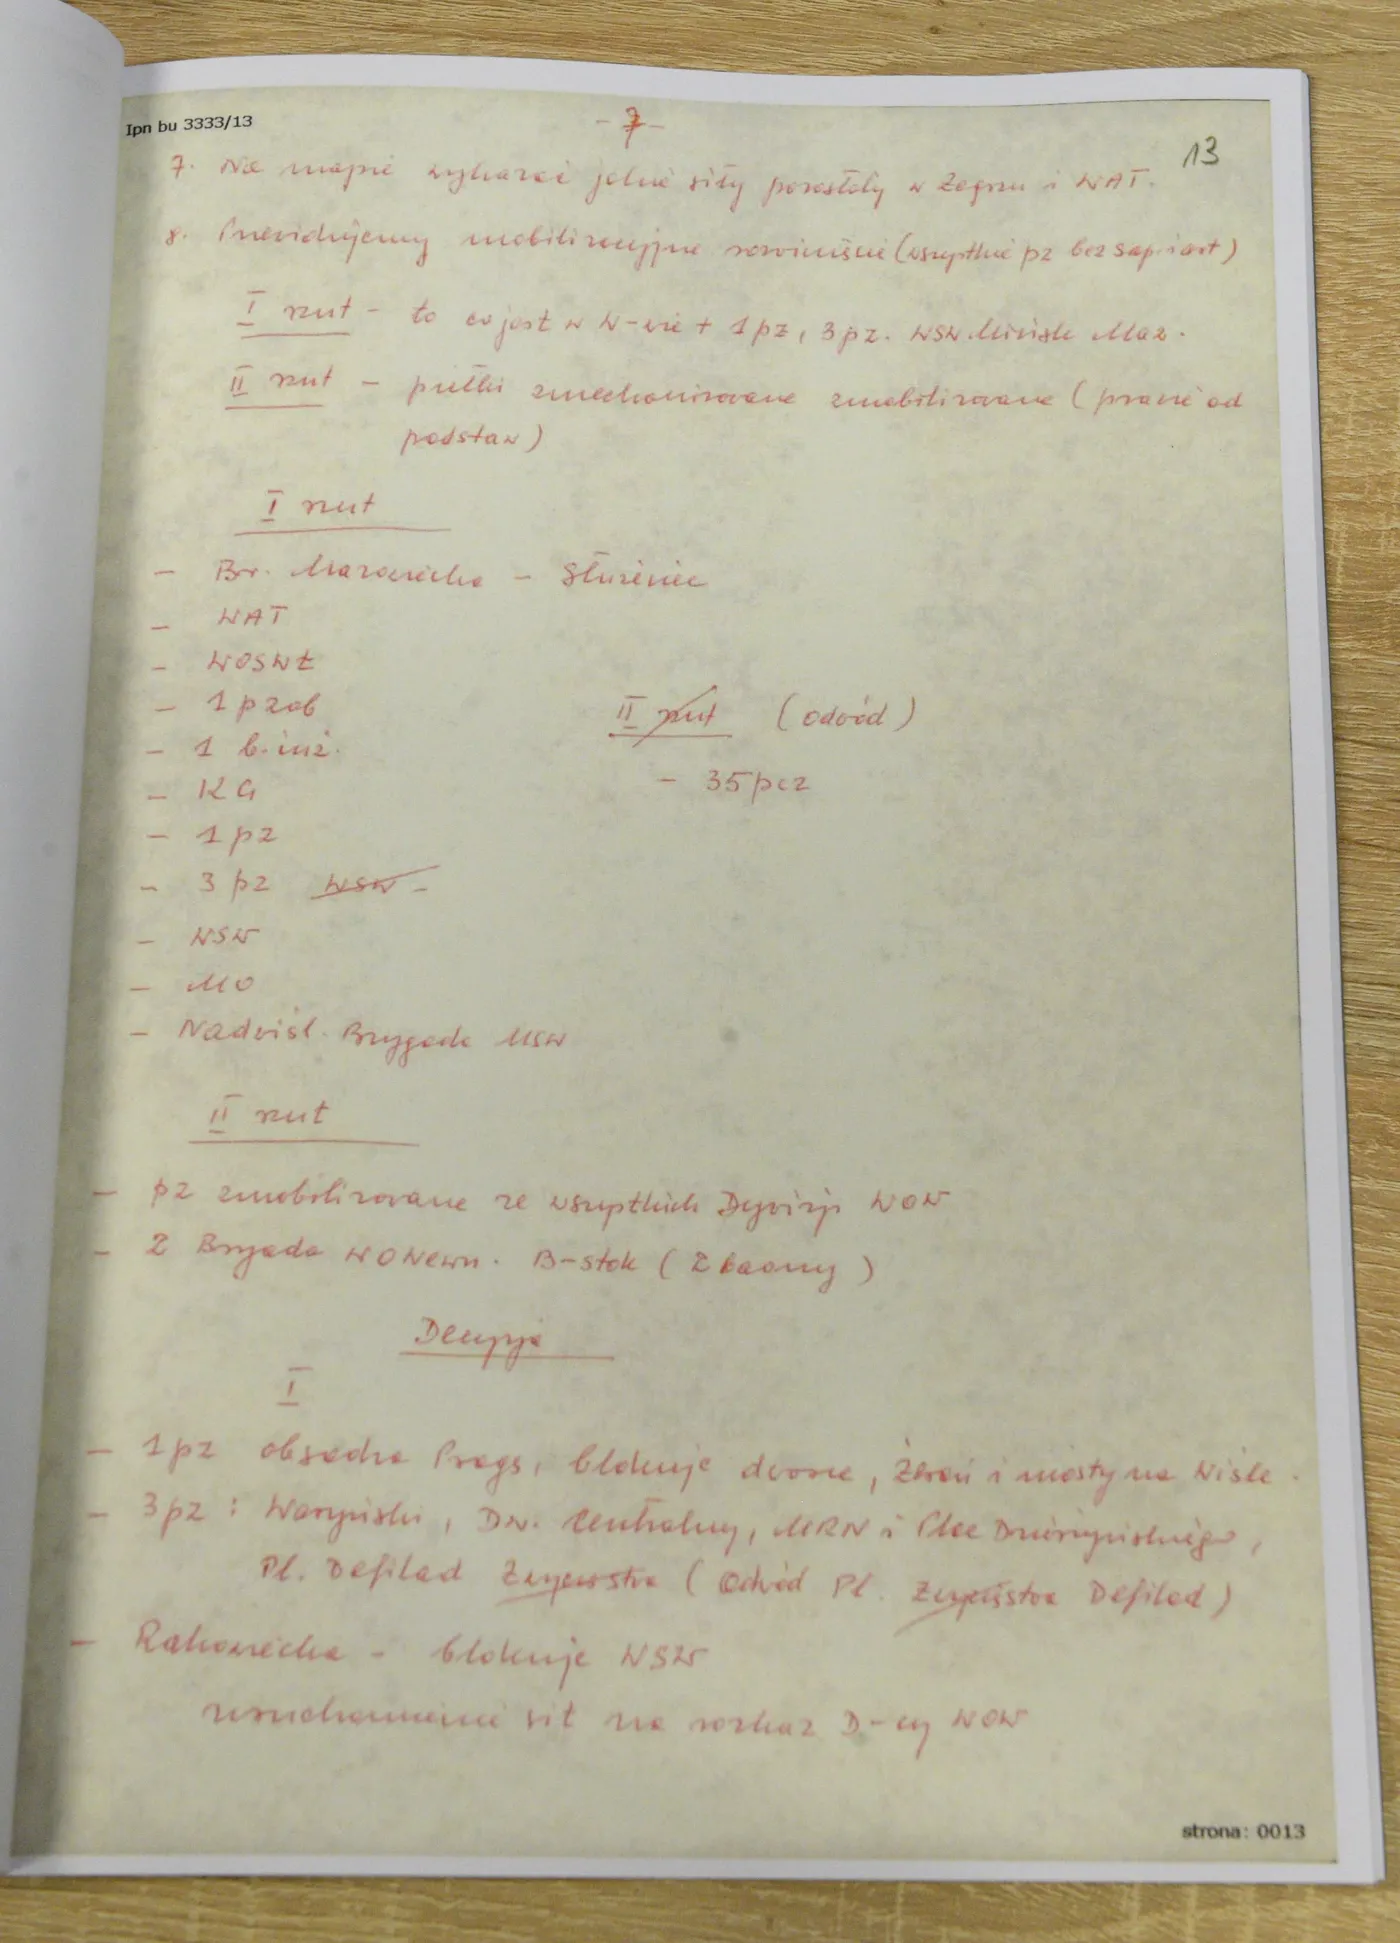 Ipn bu 3333/13
- 7 -
13
7. Na mapie wykazać jakie siły pozostały w Zegrzu i WAT.
8. Przewidujemy mobilizacyjne rozwinięcie (wszystkie pz bez sap. i art)
I rzut - to co jest w W-wie + 1 pz, 3 pz. WSW Mińsk Maz.
II rzut - pułki zmechanizowane zmobilizowane (prawie od
podstaw)
I rzut
- Br. Mazowiecka - Służewiec
- WAT
- WOSWŁ
- 1 pzab
II rzut (odwód)
- 1 b. inż.
- 35 pcz
- KG
- 1 pz
- 3 pz WSW -
- WSW
- MO
- Nadwiśl. Brygada MSW
II rzut
- pz zmobilizowane ze wszystkich Dywizji WOW
- 2 Brygada WOWewn. B-stok (2 baony)
Decyzja
I
- 1 pz obsadza Pragę, blokuje dworce, Żerań i mosty na Wiśle.
- 3 pz : Waryński, Dw. Centralny, MRN i Plac Dzierżyńskiego,
Pl. Defilad Zwycięstwa (Odwód Pl. Zwycięstwa Defilad)
- Rakowiecka - blokuje WSW
uruchomienie sił na rozkaz D-cy WOW
strona: 0013